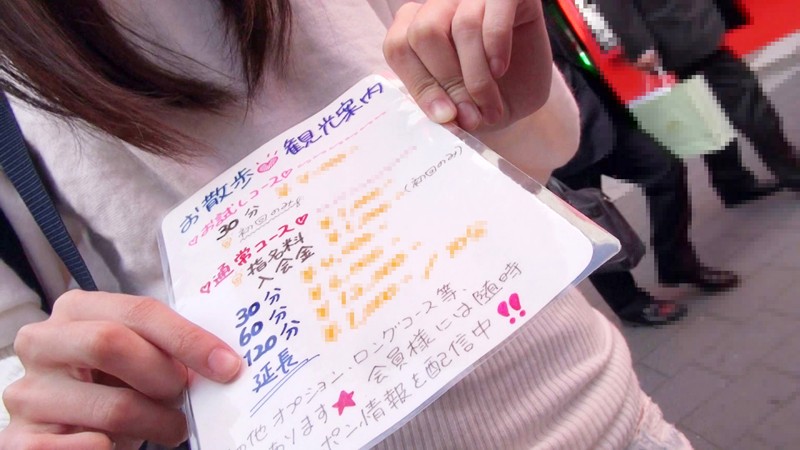 お散歩♡観光案内
♡お試しコース♡
30分
初回のみ
♡通常コース♡
指名料
入会金 (初回のみ)
30分
60分
120分
延長
他オプション・ロングコース等、
あります★会員様には随時
ポン情報を配信中!!